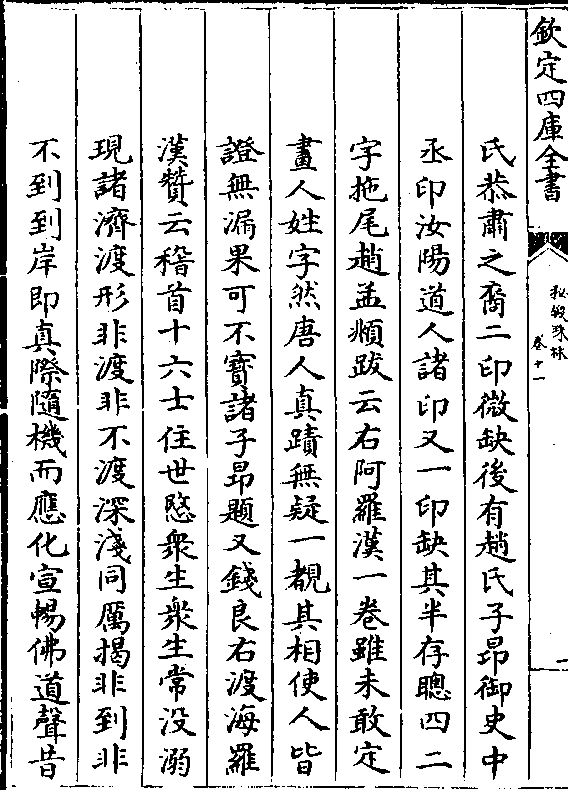 欽定四庫全書
秘殿珠林
卷十一
一
氏恭肅之裔二印微缺後有趙氏子昂御史中
丞印汝陽道人諸印又一印缺其半存聰四二
字拖尾趙孟頫跋云右阿羅漢一卷雖未敢定
畫人姓字然唐人真蹟無疑一覩其相使人皆
證無漏果可不寶諸子昂題又錢良右渡海羅
漢贊云稽首十六士住世愍衆生衆生常没溺
現諸濟渡形非渡非不渡深淺同厲揭非到非
不到到岸即真際隨機而應化宣暢佛道聲昔